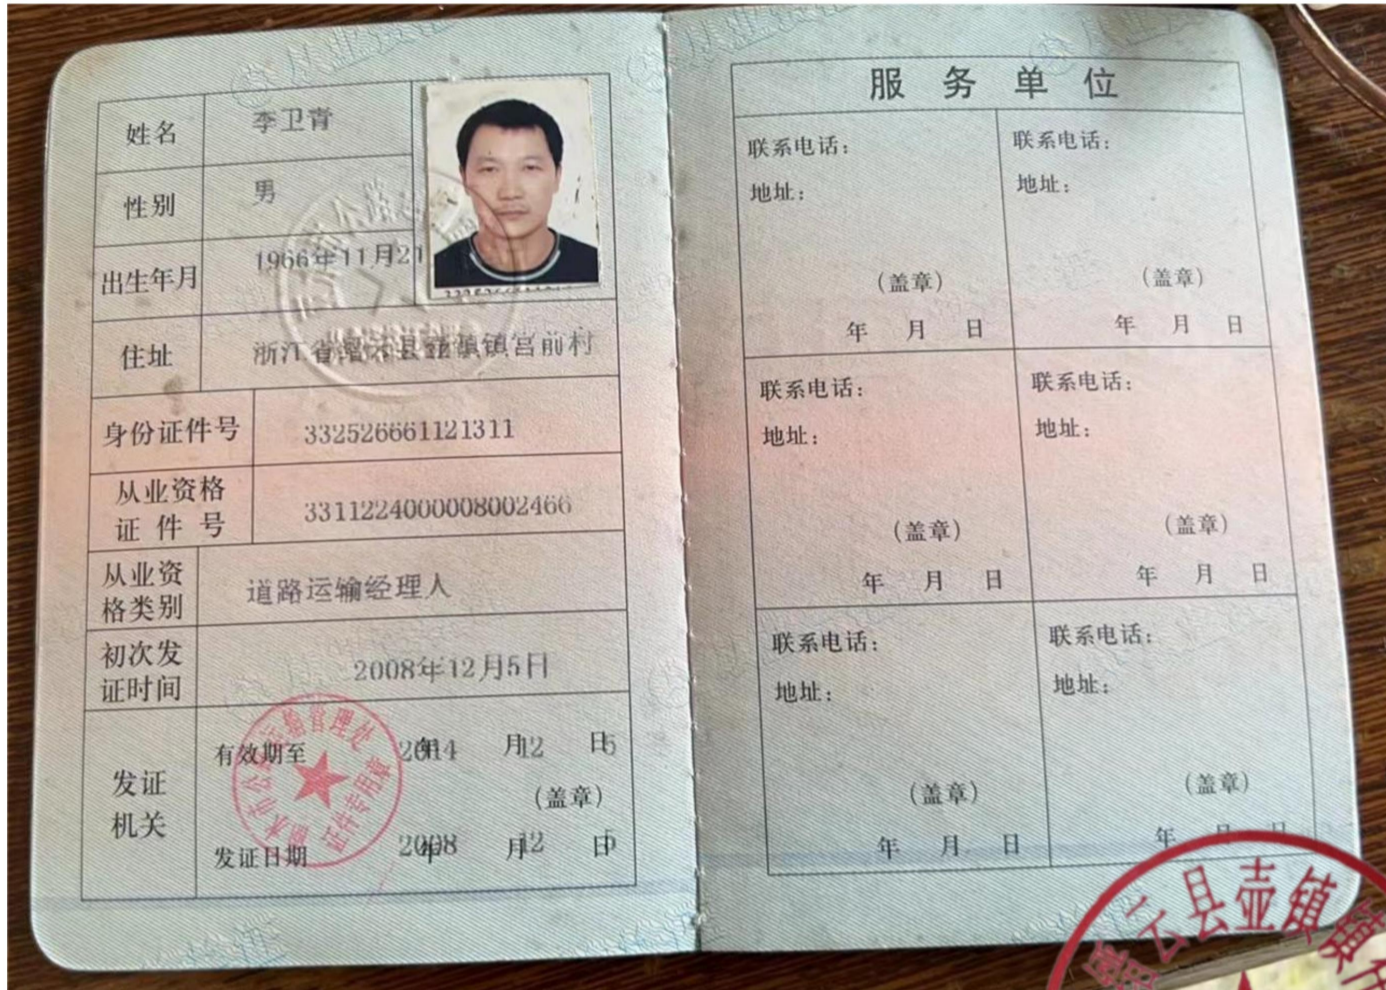 姓名 李卫青
性别 男
出生年月 1966年11月21
住址 浙江省缙云县壶镇镇宫前村
身份证件号 332526661121311
从业资格证件号 3311224000008002466
从业资格类别 道路运输经理人
初次发证时间 2008年12月5日
发证机关
有效期至 2014年 12月 5日
(盖章)
发证日期 2008年 12月 5日
丽水市公路运输管理处
证件专用章
服务单位
联系电话:
地址:
(盖章)
年 月 日
联系电话:
地址:
(盖章)
年 月 日
联系电话:
地址:
(盖章)
年 月 日
联系电话:
地址:
(盖章)
年 月 日
联系电话:
地址:
(盖章)
年 月 日
联系电话:
地址:
(盖章)
年 月 日
缙云县壶镇